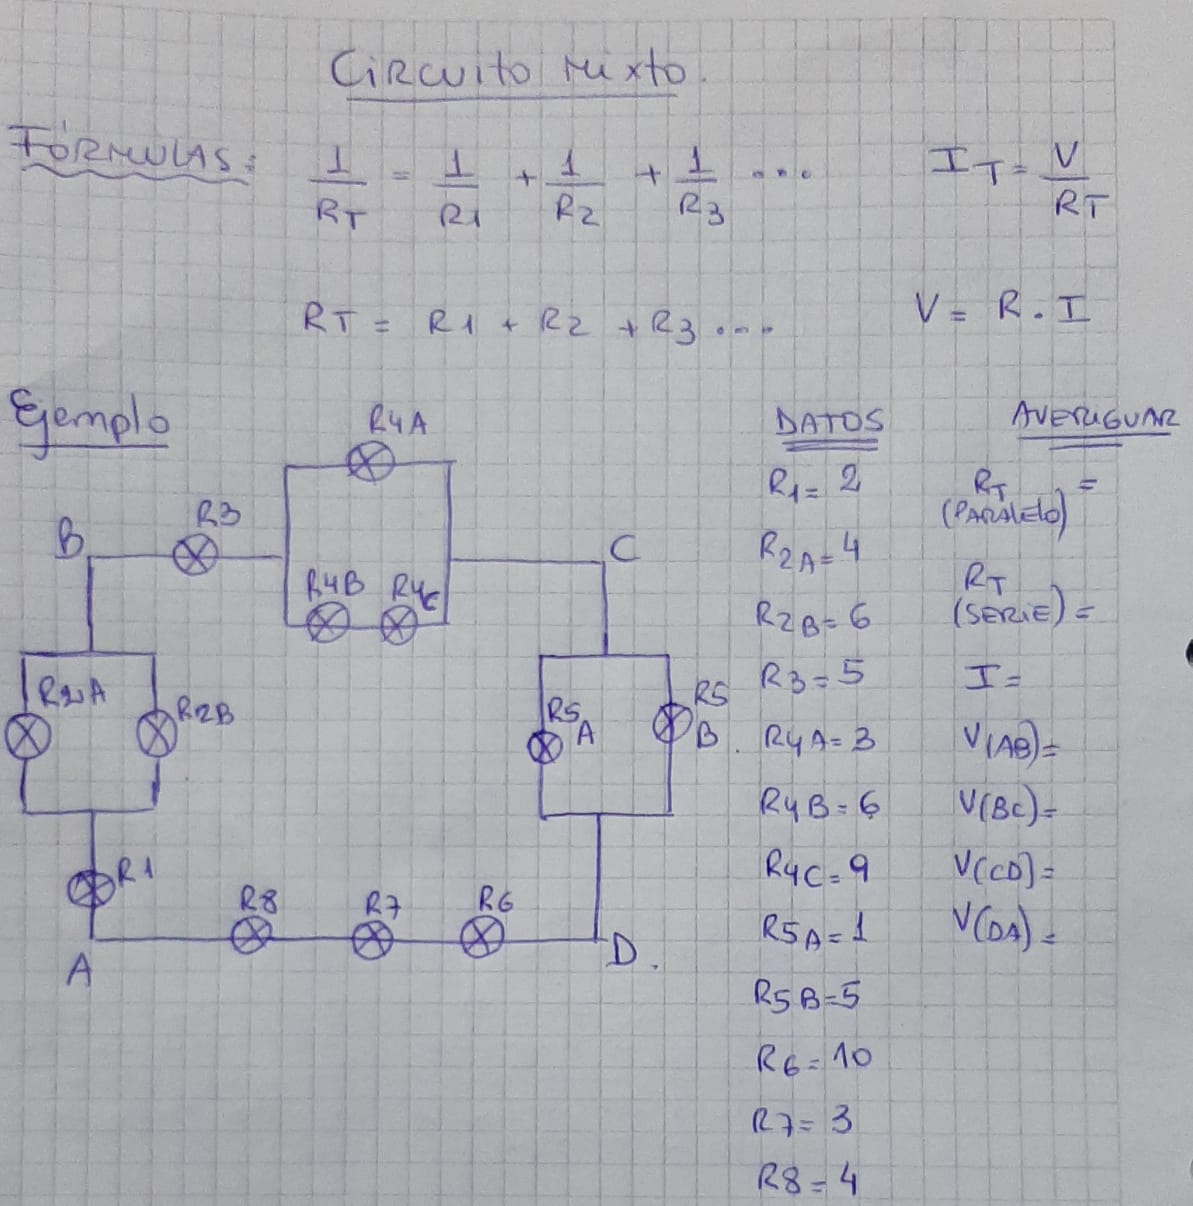 Circuito Mixto.
FÓRMULAS:
1/RT = 1/R1 + 1/R2 + 1/R3 ...
IT = V/RT
RT = R1 + R2 + R3 ...
V = R . I
Ejemplo
DATOS
AVERIGUAR
R4A
R3
B
C
R4B R4C
R2A
R2B
R5A
R5B
R1
R8
R7
R6
A
D.
R1 = 2
R2A = 4
R2B = 6
R3 = 5
R4A = 3
R4B = 6
R4C = 9
R5A = 1
R5B = 5
R6 = 10
R7 = 3
R8 = 4
RT =
(PARALELO)
RT
(SERIE) =
I =
V(AB) =
V(BC) =
V(CD) =
V(DA) =